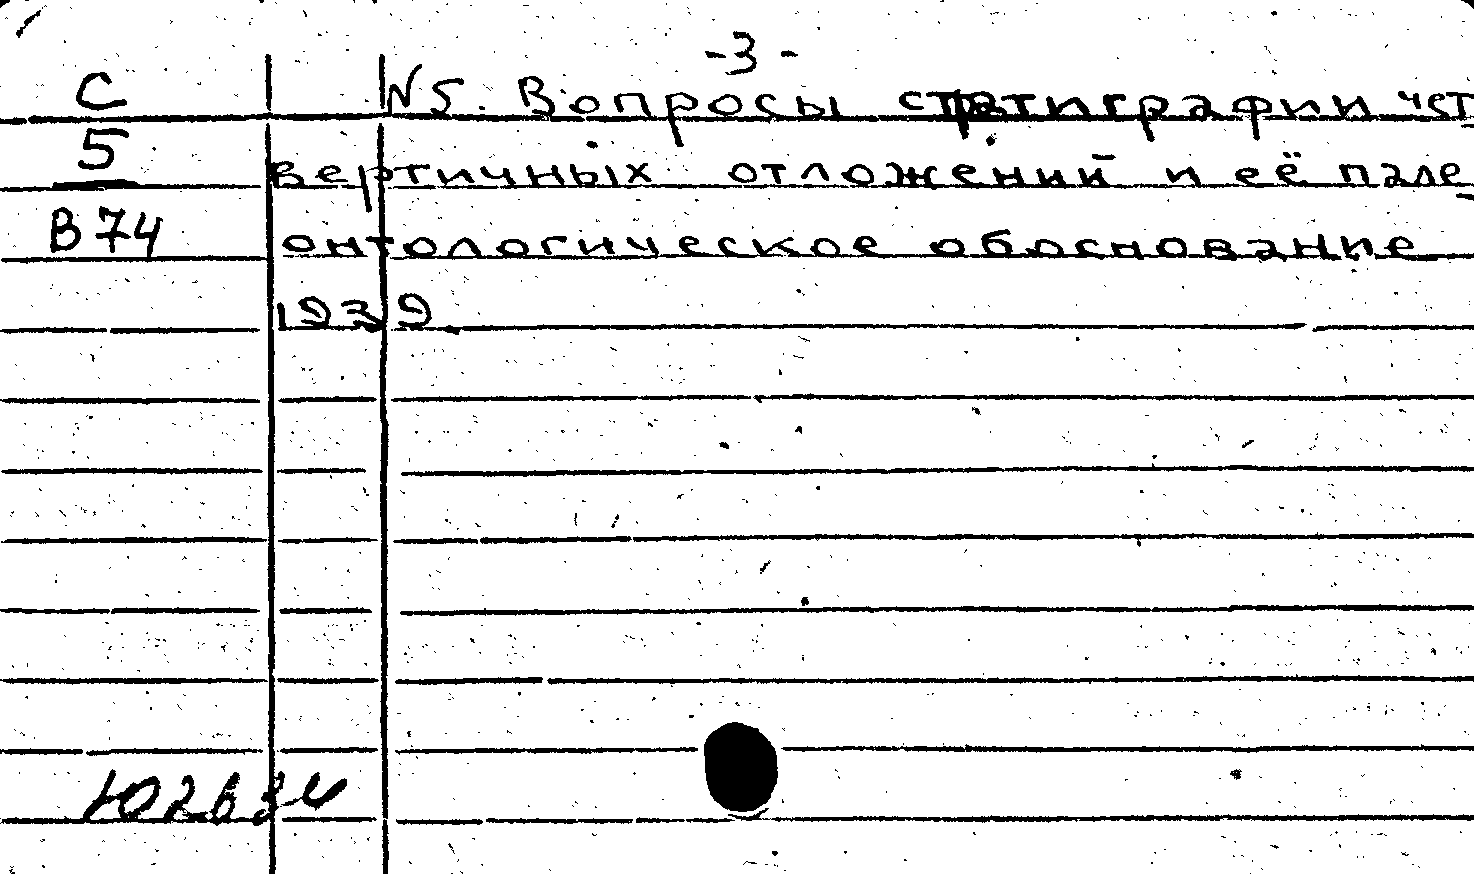 -3-
С
5
В 74
N5. Вопросы стратиграфии чет-
вертичных отложений и её пале-
онтологическое обоснование
1939